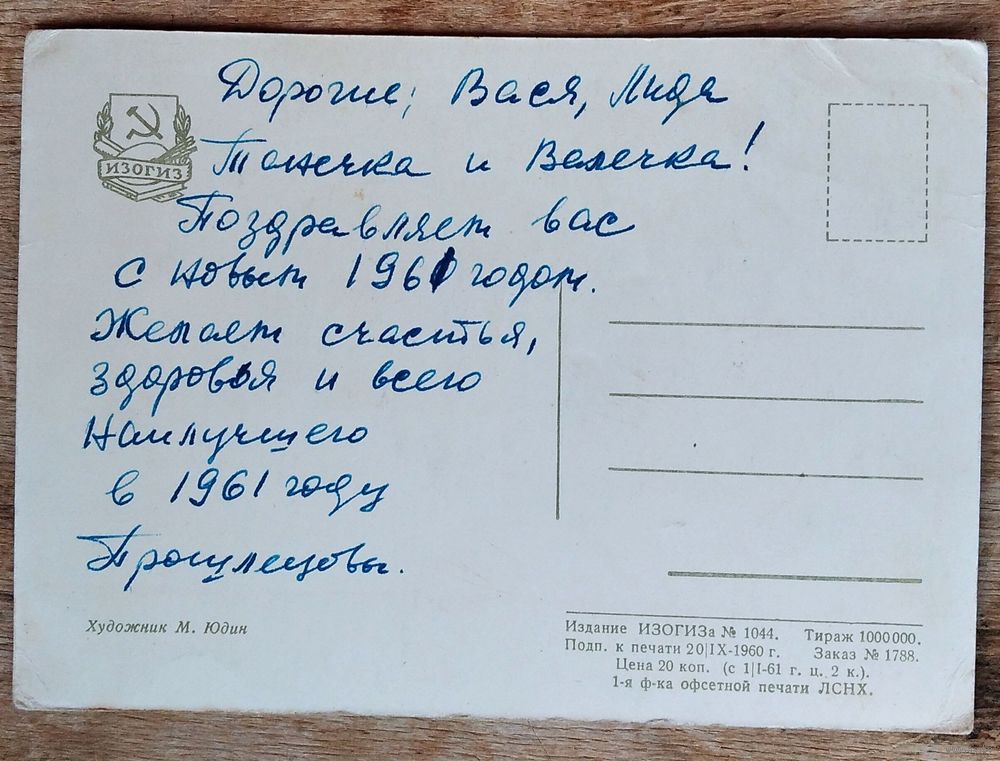 Дорогие, Вася, Лида
Танечка и Валечка!
Поздравляем вас
с новым 1961 годом.
Желаем счастья,
здоровья и всего
Наилучшего
в 1961 году
ИЗОГИЗ
Художник М. Юдин
Издание ИЗОГИЗа № 1044. Тираж 1000000.
Подп. к печати 20|IX-1960 г. Заказ № 1788.
Цена 20 коп. (с 1|I-61 г. ц. 2 к.).
1-я ф-ка офсетной печати ЛСНХ.